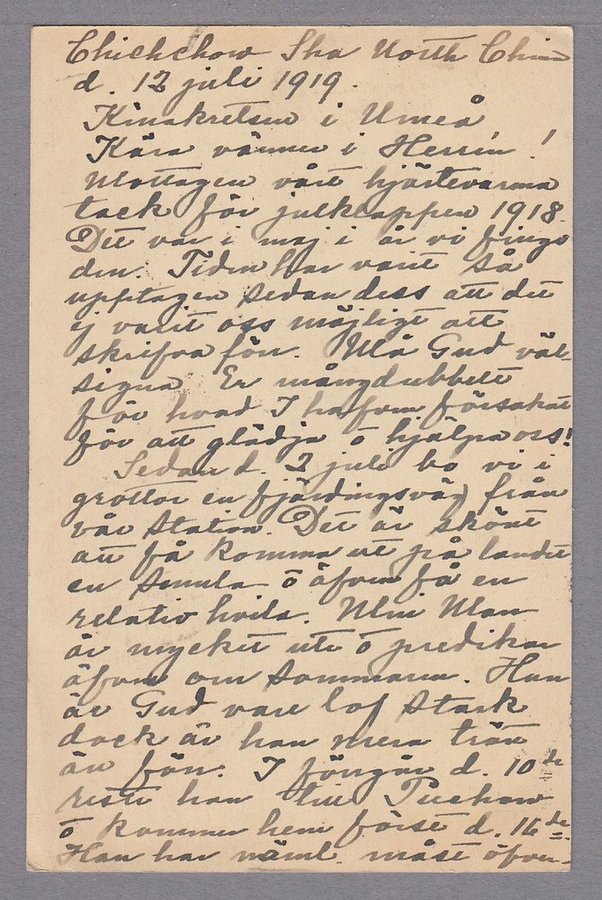 Chichchow Sha North China
d. 12 juli 1919.
Kinakretsen i Umeå
Kära vänner i Herren!
Mottagen vårt hjärtevarma
tack för julklappen 1918.
Det var i maj i år vi fingo
den. Tiden har varit så
upptagen sedan dess att det
ej varit oss möjligt att
skrifva förr. Må Gud väl-
signa Er mångdubbelt
för hvad I hafven försakat
för att glädja o hjälpa oss!
Sedan d. 2 juli bo vi i
grottor en fjärdingsväg från
vår station. Det är skönt
att få komma ut på landet
en smula o äfven få en
relativ hvila. Min Man
är mycket ute o predikar
äfven om sommaren. Han
är Gud vare lof stark
dock är han mera trött
än förr. I förrgår d. 10de
reste han till Puchow
o kommer hem först d. 16de.
Han har näml. måst öfver-